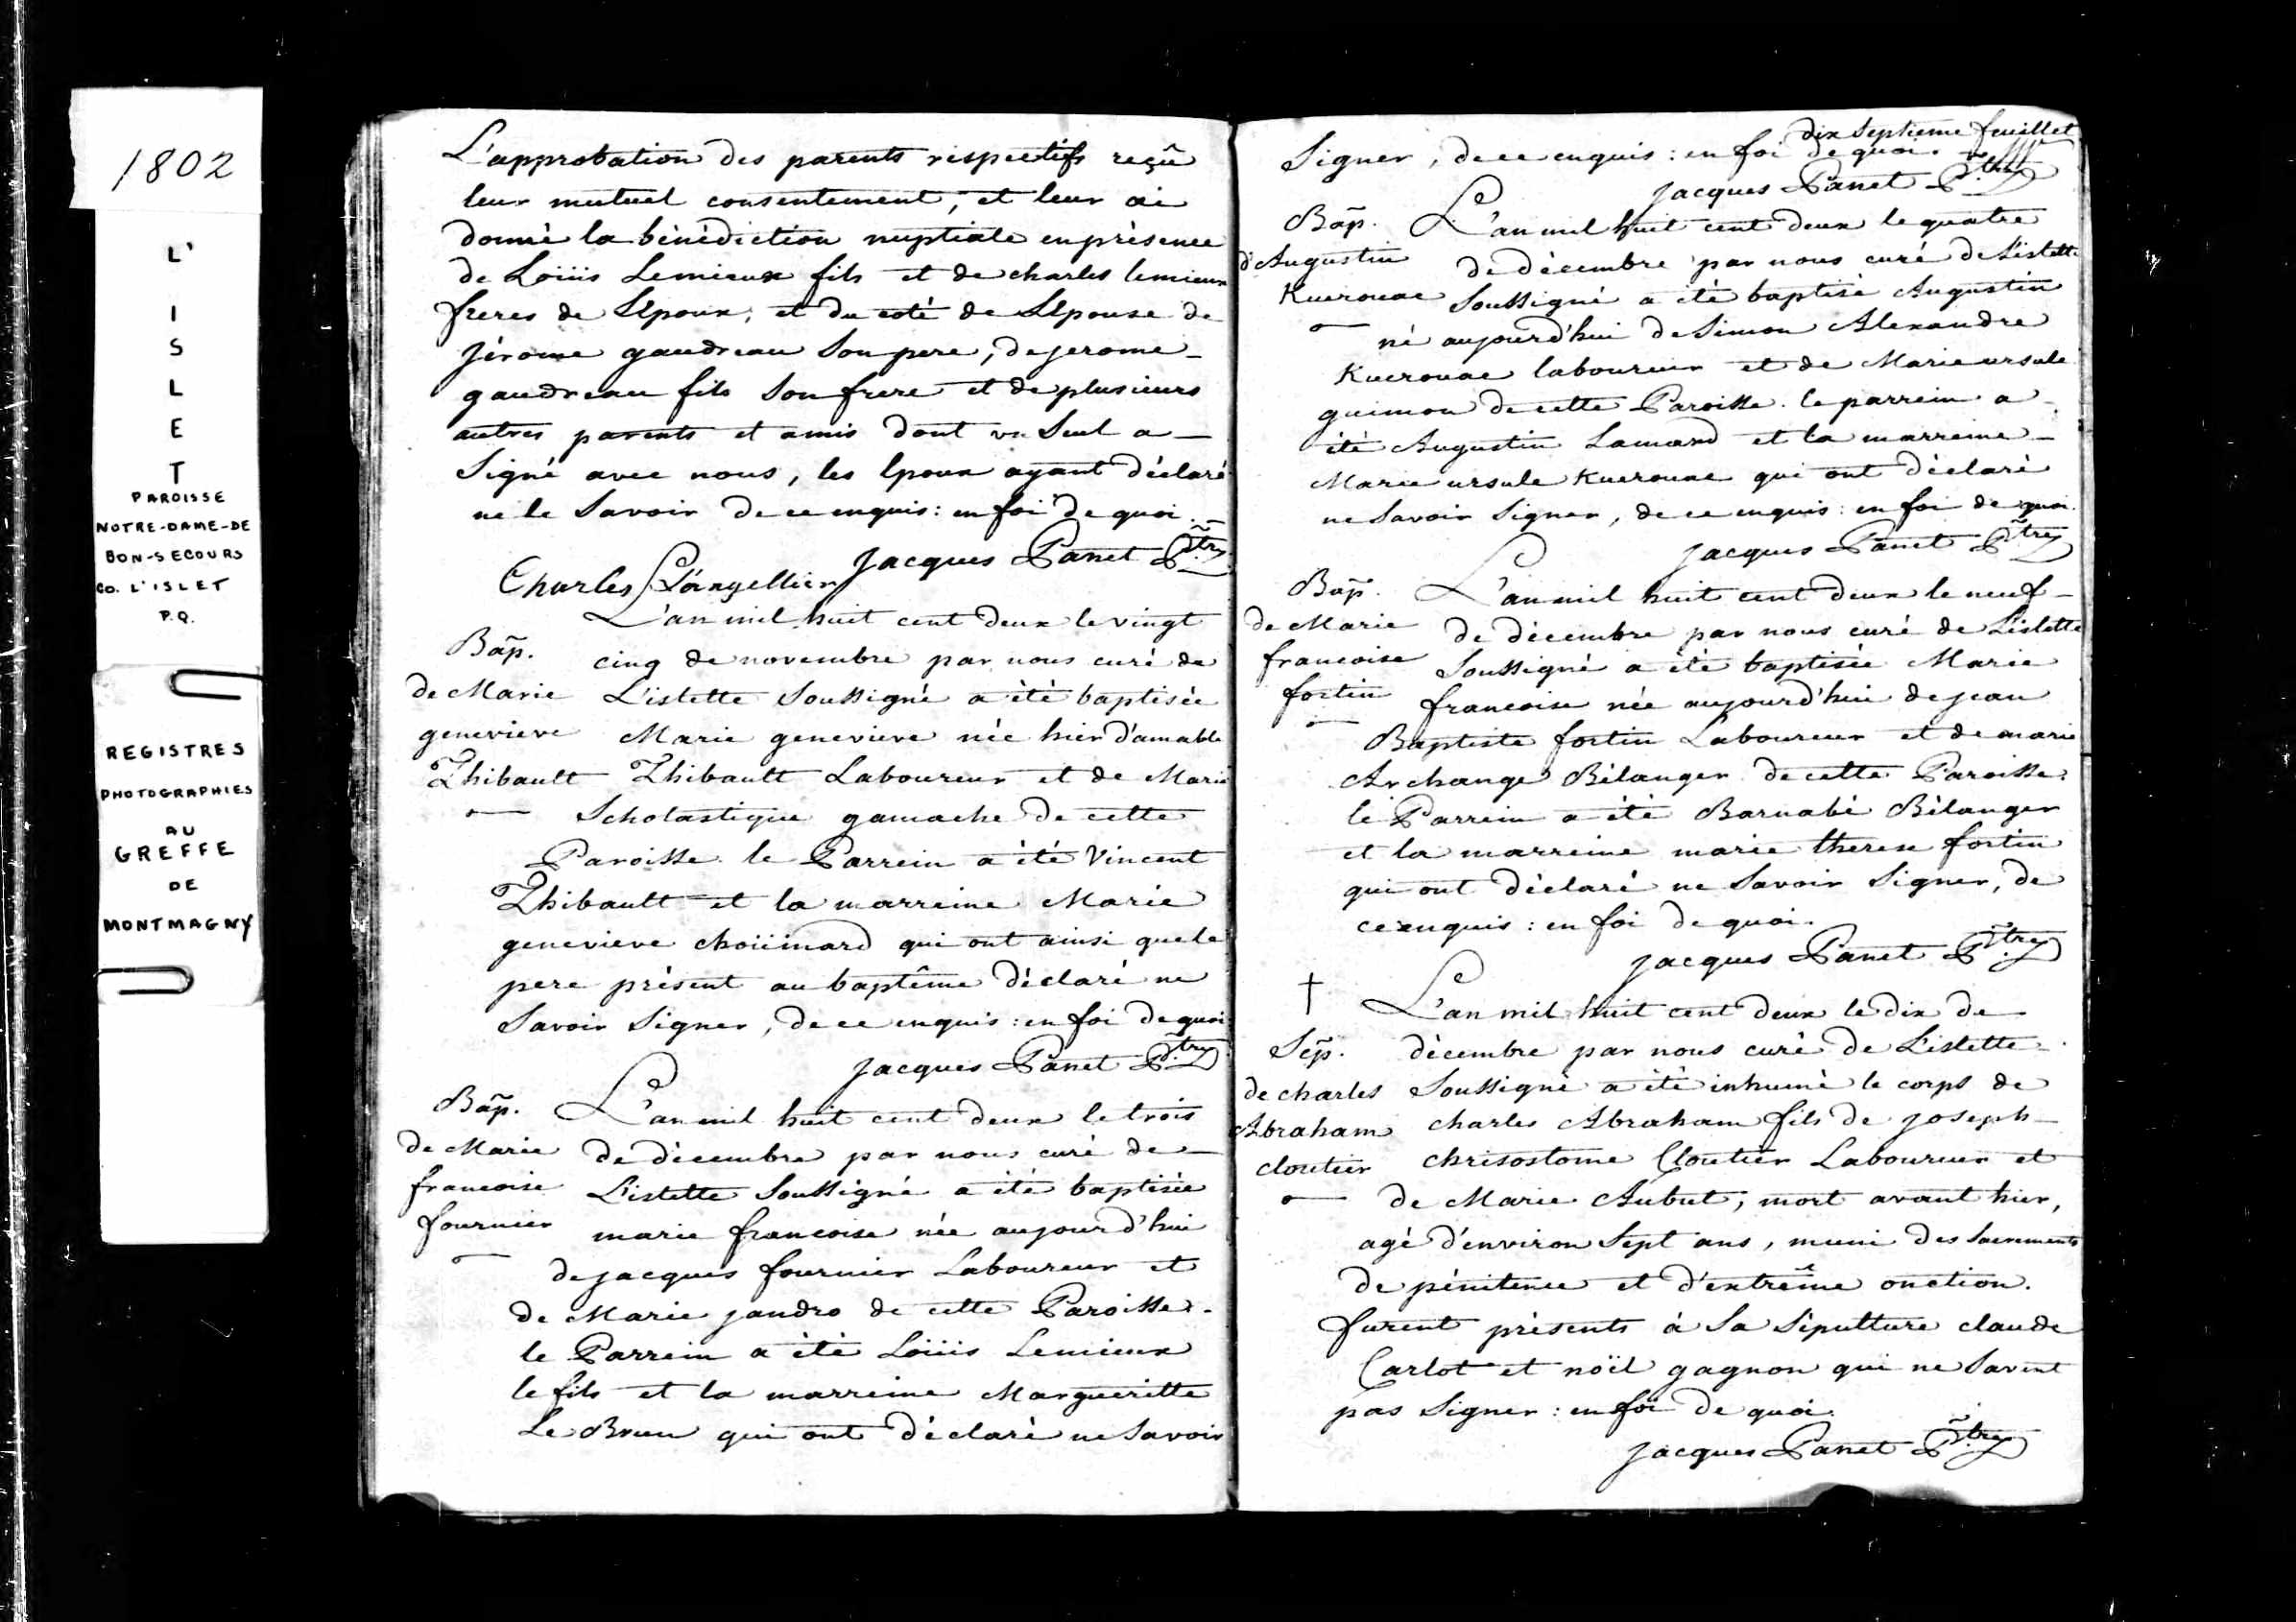 1802
L'
I
S
L
E
T
PAROISSE
NOTRE-DAME-DE
BON-SECOURS
CO. L'ISLET
P.Q.
REGISTRES
PHOTOGRAPHIES
AU
GREFFE
DE
MONTMAGNY
L'approbation des parents respectifs reçû
leur mutuel consentement, et leur ai
donné la bénédiction nuptiale en présence
de Loüis Lemieux fils et de charles lemieux
freres de L'Epoux, et du coté de L'Epouse de
Jérome gaudreau Son pere, de jerome
gaudreau fils Son frere et de plusieurs
autres parents et amis dont un Seul a
Signé avec nous, les Epoux ayant déclaré
ne le Savoir de ce enquis : en foi de quoi.
Charles L'angellier Jacques Panet Ptre
L'an mil huit cent deux le vingt
Bap. cinq de novembre par nous curé de
de Marie L'islette Soussigné a été baptisée
genevieve Marie genevieve née hier d'amable
Thibault Thibault Laboureur et de Marie
Scholastique gamache de cette
Paroisse. le Parrein a été Vincent
Thibault et la marreine Marie
genevieve choüinard qui ont ainsi que le
pere présent au baptême déclaré ne
Savoir Signer, de ce enquis : en foi de quoi
Jacques Panet Ptre
Bap. L'an mil huit cent deux le trois
de Marie de décembre par nous curé de
francoise L'islette Soussigné a été baptisée
fournier marie francoise née aujourd'hui
de jacques fournier Laboureur et
de Marie jandro de cette Paroisse.
le Parrein a été Loüis Lemieux
le fils et la marreine Margueritte
Le Brun qui ont déclaré ne Savoir
dix Septieme feuillet
Signer, de ce enquis : en foi de quoi.
Jacques Panet Ptre
Bap. L'an mil huit cent deux le quatre
d'Augustin de décembre par nous curé de L'islette
Kuerouac Soussigné a été baptisé Augustin
né aujourd'hui de Simon Alexandre
Kuerouac laboureur et de Marie ursule
guimon de cette Paroisse. le parrein a
été Augustin Lamard et la marreine
Marie ursule Kuerouac qui ont déclaré
ne Savoir Signer, de ce enquis : en foi de quoi.
Jacques Panet Ptre
Bap. L'an mil huit cent deux le neuf
de Marie de décembre par nous curé de L'islette
francoise Soussigné a été baptisée Marie
fortin francoise née aujourd'hui de jean
Baptiste fortin Laboureur et de marie
Archange Bélanger de cette Paroisse.
le Parrein a été Barnabé Bélanger
et la marreine marie therese fortin
qui ont déclaré ne Savoir Signer, de
ce enquis : en foi de quoi.
Jacques Panet Ptre
† L'an mil huit cent deux le dix de
Sep. décembre par nous curé de L'islette
de charles Soussigné a été inhumé le corps de
Abraham charles Abraham fils de joseph
cloutier chrisostome Cloutier Laboureur et
de Marie Aubut, mort avant hier,
agé d'environ Sept ans, muni des Sacrements
de pénitence et d'extrême onction.
furent présents à Sa Sépulture claude
Carlot et noël gagnon qui ne Savent
pas Signer : en foi de quoi.
Jacques Panet Ptre